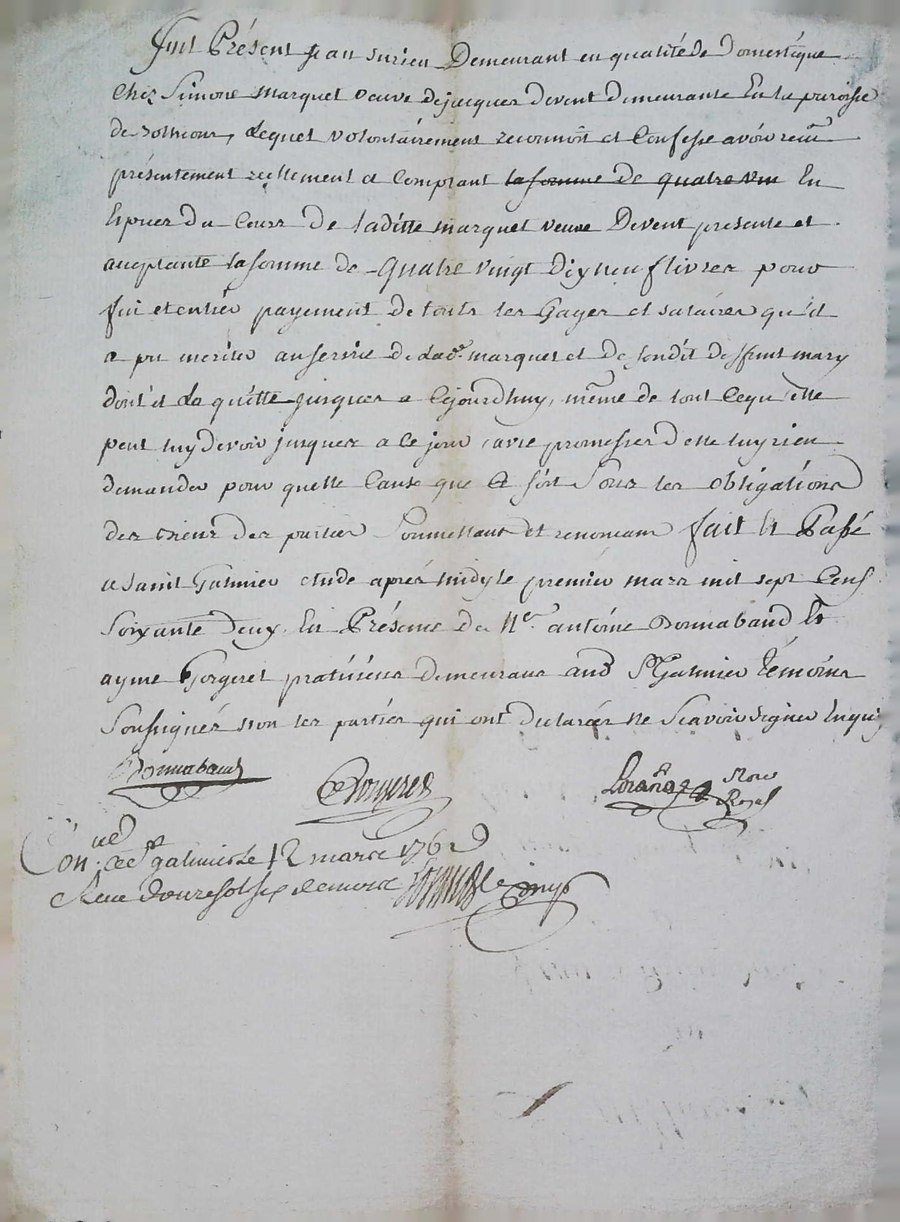 fut Présent jean surieu Demeurant en qualité de Domestique
Chez Simone marquet veuve de jacques devent demeurante En la paroisse
de , Lequel volontairement reconnoit et Confesse avoir reçu
présentement reellement et Comptant la somme de quatre vin En
Espices du Cours De laditte marquet veuve Devent presente et
aceptante la somme de quatre vingt Dix neuf livres pour
fin et entier payement De touts les Gages et salaires qu'il
a pu meriter au service de Lade. marquet et De sondit deffunt mary
dont il La quitte jusques a Cejourdhuy, même de tout Cequ'elle
peut luy devoir jusques a ce jour, avec promesses De ne luy rien
demander pour quelle Cause que Ce soit Sous les obligations
des biens des parties Soumettant et renoncans fait Et Passé
a saint Galmier etude après midy le premier mars mil sept Cens
Soixante deux En Présence de Mer. antoine Bonnabaud Et
ayme Gorgeret praticiens demeurans aud St Galmier témoins
Soussignés non les parties qui ont déclarées ne Scavoir signer Enquis
Bonnabaud
Gorgeret
Nore
Royal
Con.lé a St galmier le 12 mars 1762
Reçu douze sols six deniers